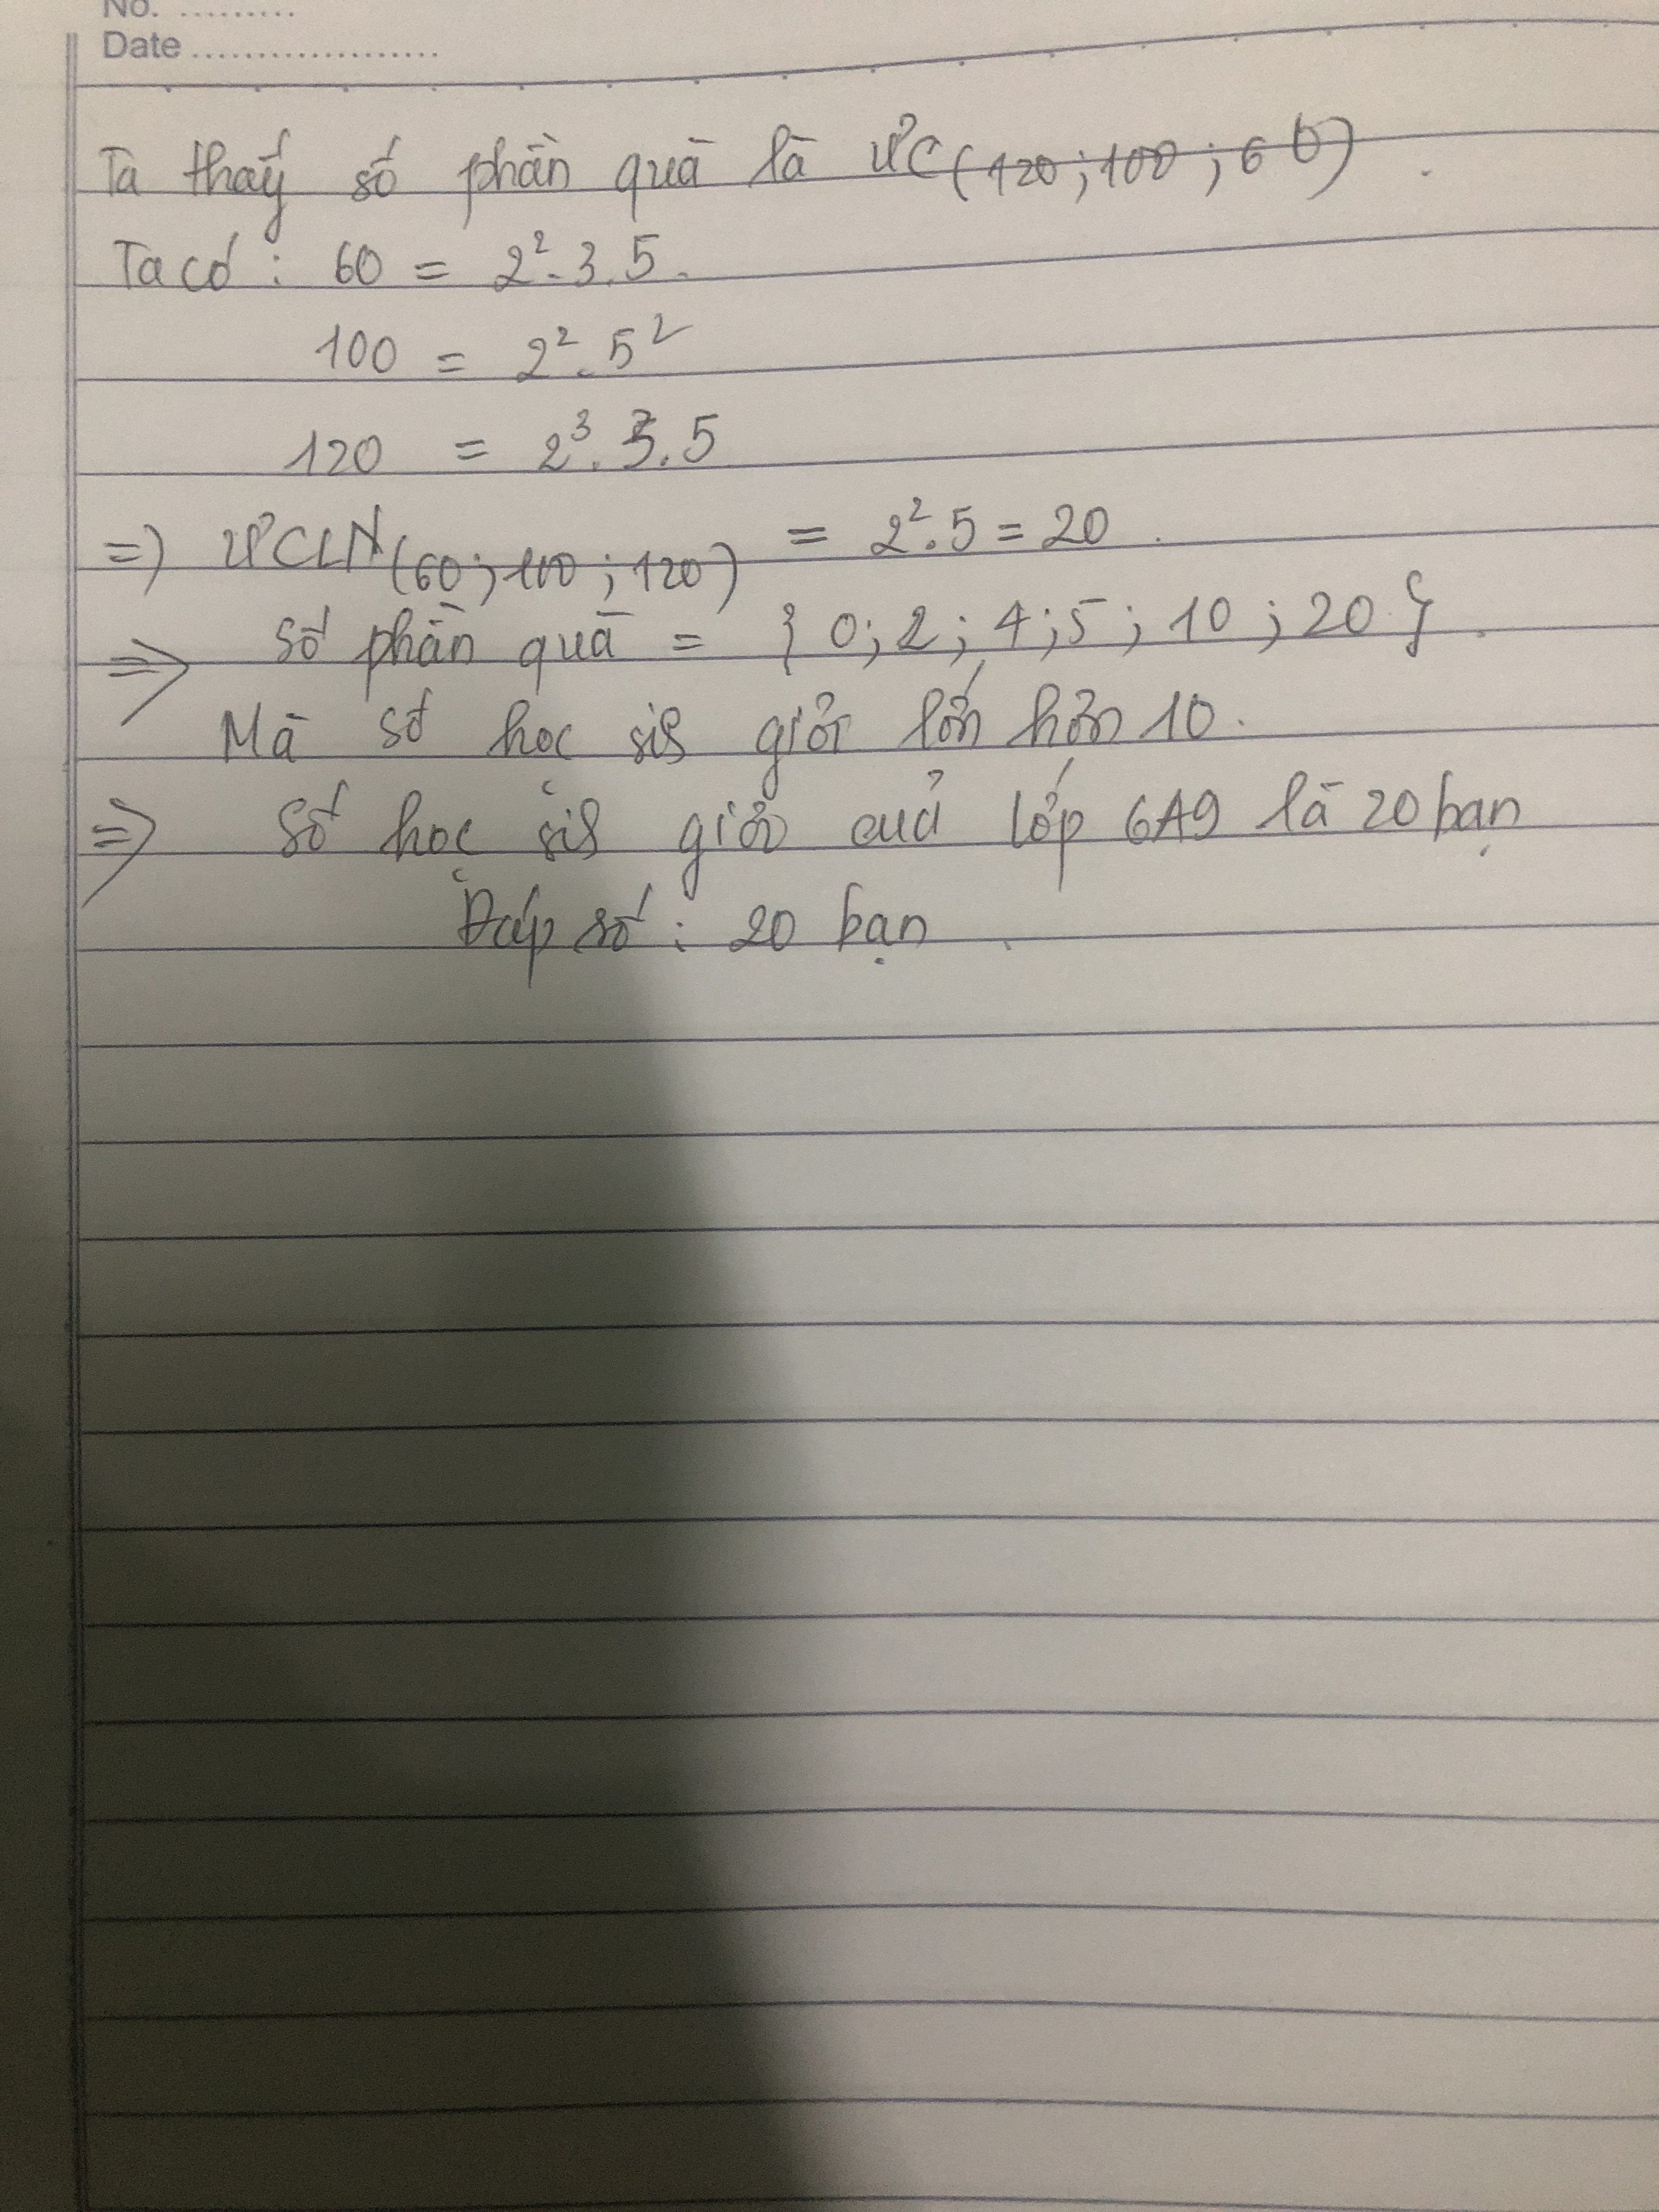 No. .........
Date ...................
Ta thấy số phần quà là ƯC(120;100;60).
Ta có: 60 = 2².3.5.
100 = 2².5²
120 = 2³.3.5
=) ƯCLN(60;100;120) = 2².5 = 20.
=> Số phần quà = { 0; 2; 4; 5; 10; 20 }.
Mà số học sih giỏi lớn hơn 10.
=> Số học sih giỏi của lớp 6A9 là 20 bạn
Đáp số: 20 bạn.